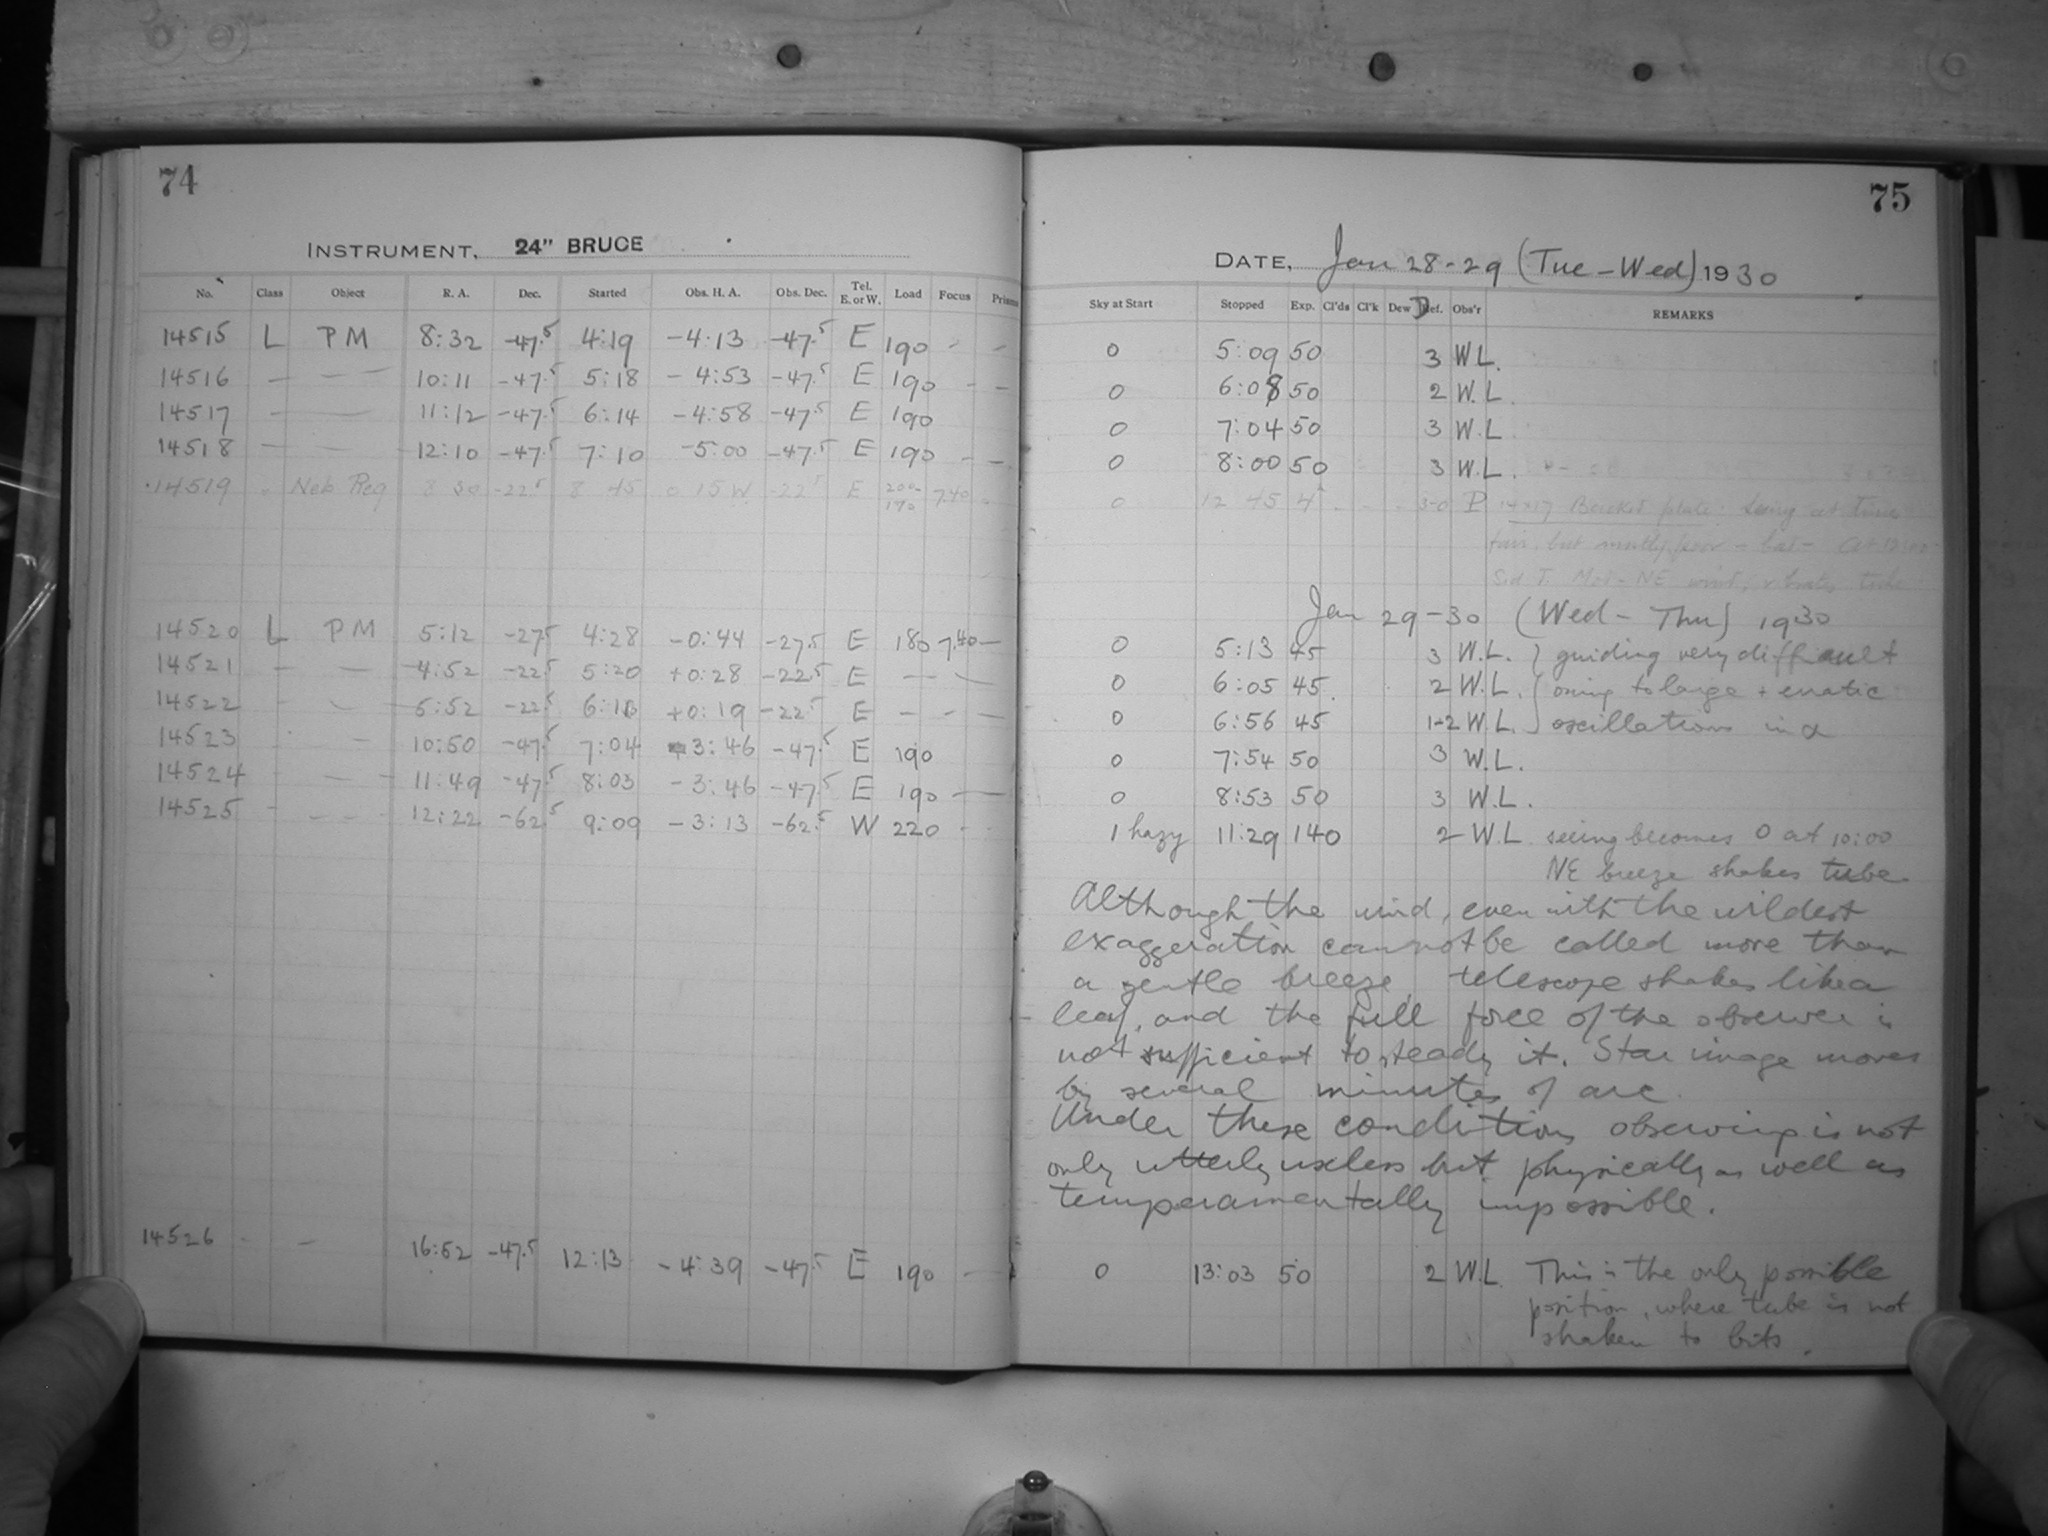 74
INSTRUMENT, 24" BRUCE
No. Class Object R. A. Dec. Started Obs. H. A. Obs. Dec. Tel. E. or W. Load Focus Prism
14515 L PM 8:32 -47.5 4:19 -4:13 -47.5 E 190 - -
14516 — — — 10:11 -47.5 5:18 -4:53 -47.5 E 190 - -
14517 — — 11:12 -47.5 6:14 -4:58 -47.5 E 190
14518 — — 12:10 -47.5 7:10 -5:00 -47.5 E 190 - -
14519 " Neb Reg 8 30 -22.5 8 45 0 15 W -22.5 E 200-190 7.40
14520 L PM 5:12 -27.5 4:28 -0:44 -27.5 E 180 7.40 —
14521 - — 4:52 -22.5 5:20 +0:28 -22.5 E — — —
14522 - — 5:52 -22.5 6:11 +0:19 -22.5 E - - —
14523 - — 10:50 -47.5 7:04 -3:46 -47.5 E 190
14524 - — — 11:49 -47.5 8:03 -3:46 -47.5 E 190 — —
14525 - - - - 12:22 -62.5 9:09 -3:13 -62.5 W 220 - -
14526 - — 16:52 -47.5 12:13 -4:39 -47.5 E 190 - —
75
DATE, Jan 28-29 (Tue-Wed) 1930
Sky at Start Stopped Exp. Cl'ds Cl'k Dew Def. Obs'r REMARKS
0 5:09 50 3 W.L.
0 6:08 50 2 W.L.
0 7:04 50 3 W.L.
0 8:00 50 3 W.L.
0 12 45 4 3-0 P 14x17 plate. Seeing at times
fair, but mostly poor - bad - At 12:00
Sid T. Mod- NE wind, vibrates tube
Jan 29-30 (Wed-Thu) 1930
0 5:13 45 3 W.L. } guiding very difficult
0 6:05 45 2 W.L. owing to large + erratic
0 6:56 45 1-2 W.L. oscillations in α
0 7:54 50 3 W.L.
0 8:53 50 3 W.L.
1 hazy 11:29 140 2 W.L. seeing becomes 0 at 10:00
NE breeze shakes tube
Although the wind, even with the wildest
exaggeration cannot be called more than
a gentle breeze, telescope shakes like a
leaf, and the full force of the observer is
not sufficient to steady it. Star image moves
by several minutes of arc.
Under these conditions observing is not
only utterly useless but physically as well as
temperamentally impossible.
0 13:03 50 2 W.L. This is the only possible
position, where tube is not
shaken to bits.